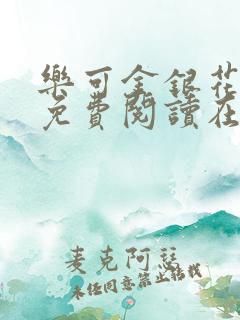 樂可金銀花
免費閱讀在
麦克阿瑟
未经同意禁止转载